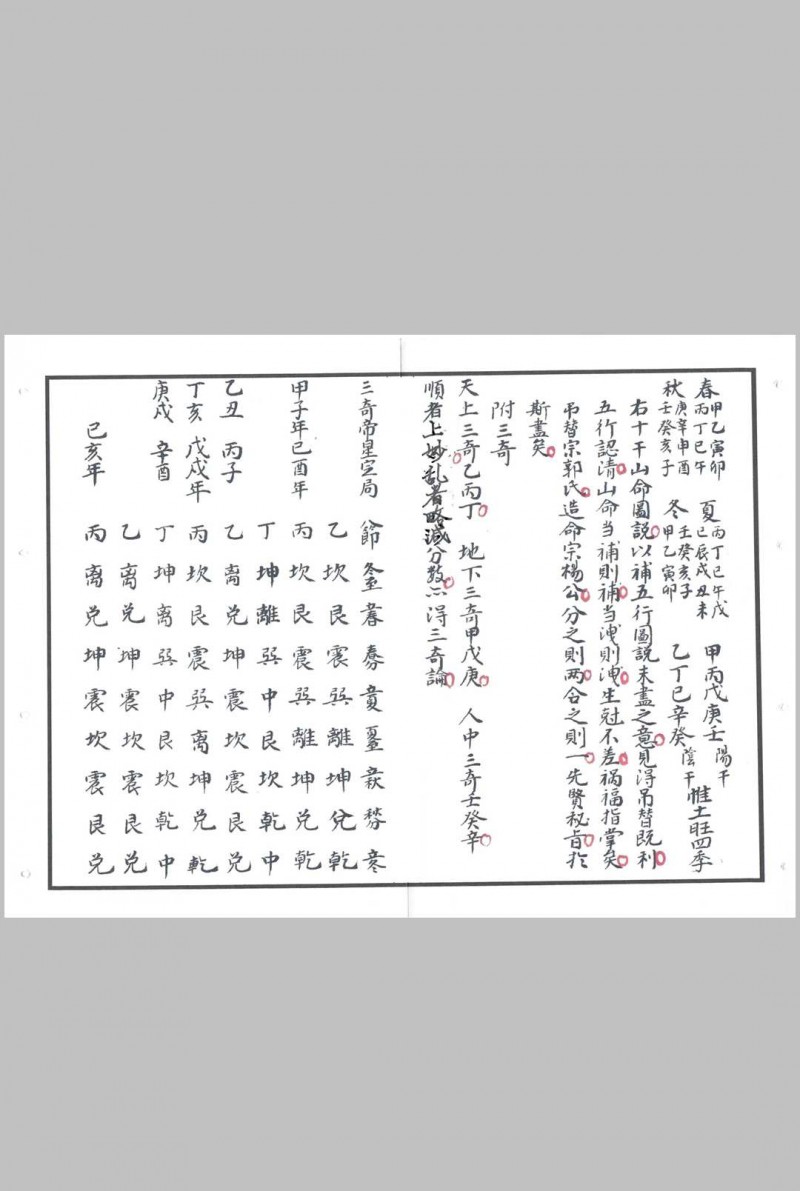 春甲乙寅卯丙丁巳午 夏丙丁巳午戊己辰戌丑未 甲丙戊庚壬陽干
秋庚辛申酉壬癸亥子 冬壬癸亥子甲乙寅卯 乙丁己辛癸陰干 惟土旺四季
右十干山命圖説以補五行圖説未盡之意見得吊替既利
五行認清山命当補則補当洩則洩生尅不差禍福指掌矣
吊替宗郭氏造命宗楊公分之則两合之則一先賢秘旨於
斯盡矣
附三奇
天上三奇乙丙丁 地下三奇甲戊庚 人中三奇壬癸辛
順者上妙乱者略減分数灬得三奇論
三奇帝星定局 節 冬至 立春 春分 立夏 夏至 立秋 秋分 立冬
乙 坎 艮 震 巽 離 坤 兌 乾
甲子年己酉年 丙 坎 艮 震 巽 離 坤 兑 乾
丁 坤 離 巽 中 艮 坎 乾 中
乙丑 丙子 乙 离 兑 坤 震 坎 震 艮 兑
丁亥 戊戌年 丙 坎 艮 震 巽 离 坤 兑 乾
庚戌 辛酉 丁 坤 离 巽 中 艮 坎 乾 中
乙 离 兑 坤 震 坎 震 艮 兑
己亥年 丙 离 兑 坤 震 坎 震 艮 兑